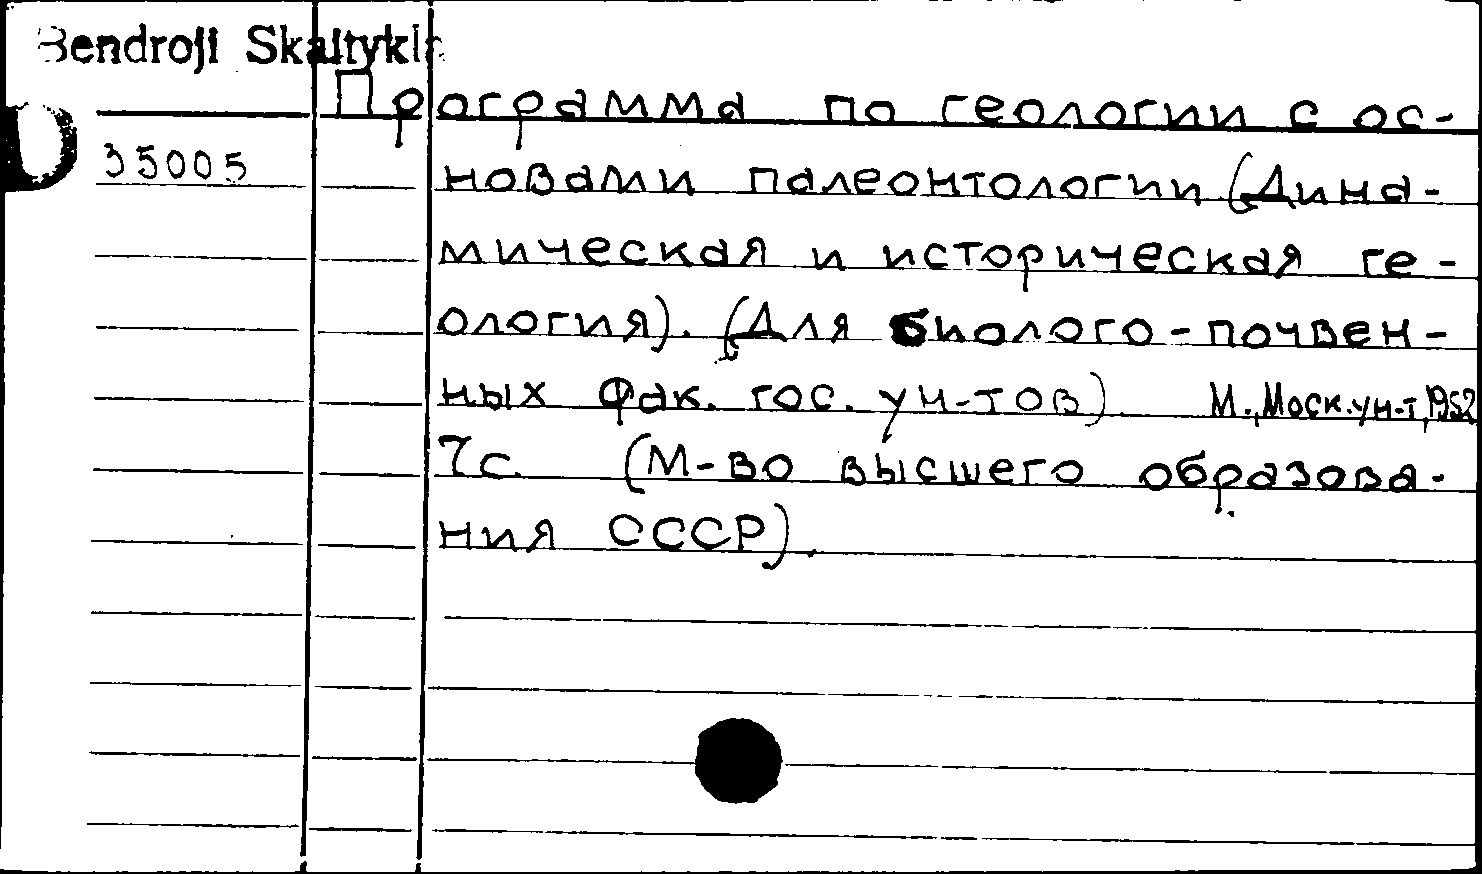 Bendroji Skaitykla
Программа по геологии с ос-
35005 новами палеонтологии (Дина-
мическая и историческая ге-
ология). (Для биолого-почвен-
ных фак. гос. ун-тов). М., Моск. ун-т, 1952
7с. (М-во высшего образова-
ния СССР).